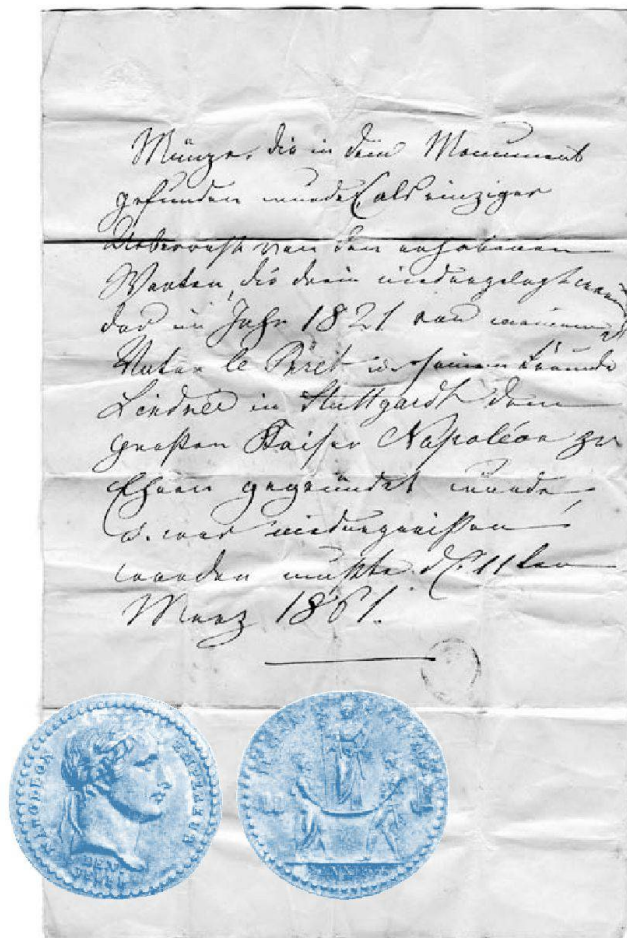 Münze, die in dem Monument
gefunden wurde (als einziger
Ueberrest von den erhabenen
Werken, die drein niedergelegt waren)
das im Jahr 1821 von meinem
Vater le Pret u. seinem Freunde
Lindner in Stuttgardt dem
großen Kaiser Napoléon zu
Ehren gegründet wurde,
u. niedergerissen
werden mußte. d. 11ten
Merz 1861.
NAPOLEON EMPEREUR
DENON